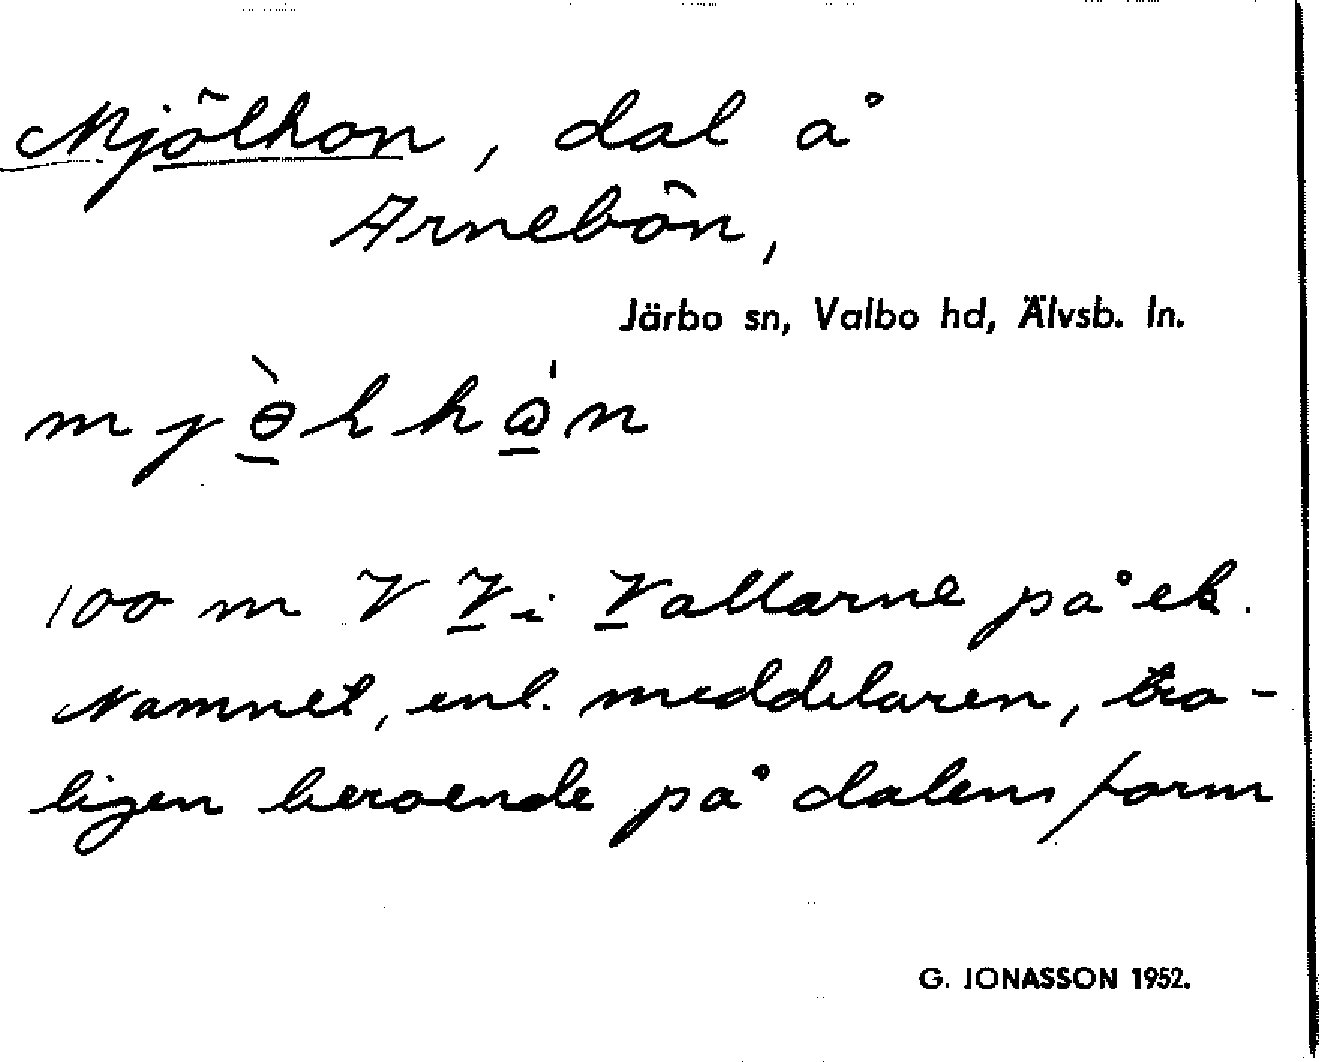 Mjölhon, dal å
Arnebön,
Järbo sn, Valbo hd, Älvsb. ln.
100 m V V i Vallarne på ek.
Namnet, enl. meddelaren, tro-
ligen beroende på dalens form
G. JONASSON 1952.